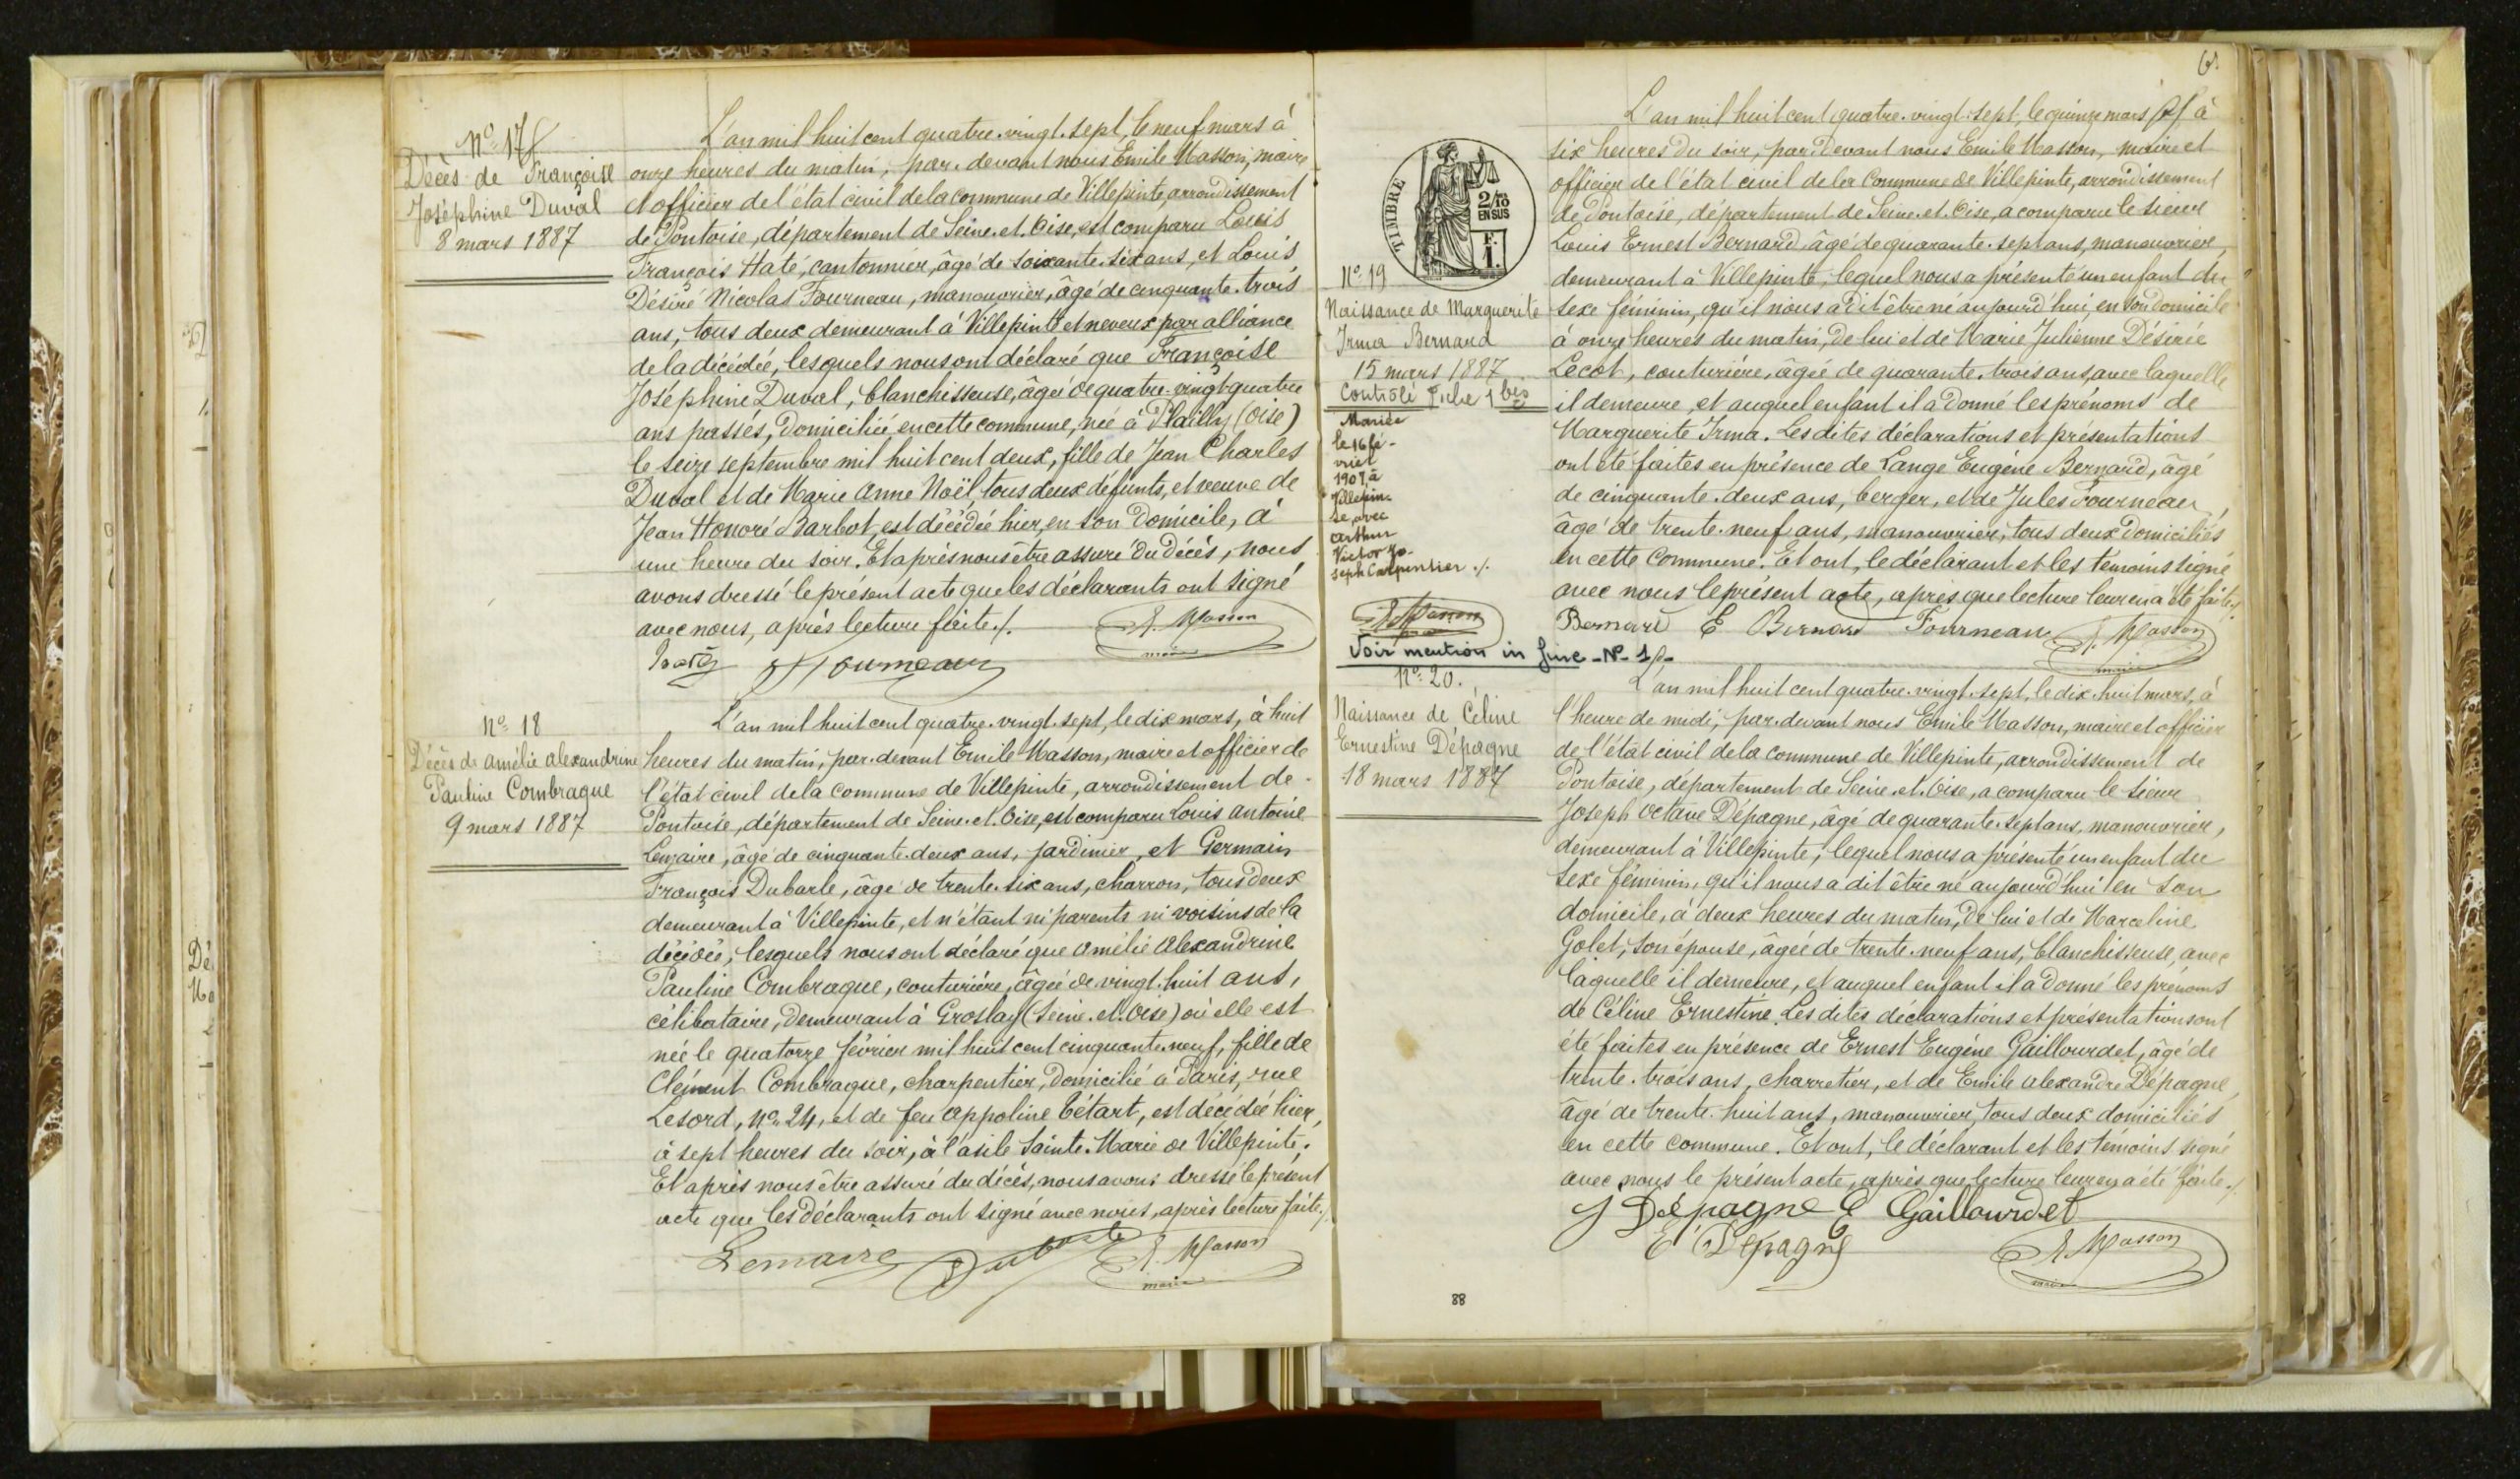 Nº 17
Décès de Françoise
Joséphine Duval
8 mars 1887
L'an mil huit cent quatre-vingt-sept, le neuf mars à
onze heures du matin, par-devant nous Emile Masson, maire
et officier de l'état civil de la commune de Villepinte, arrondissement
de Pontoise, département de Seine-et-Oise, est comparu Louis
François Haté, cantonnier, âgé de soixante-six ans, et Louis
Désiré Nicolas Fourneau, manouvrier, âgé de cinquante-trois
ans, tous deux demeurant à Villepinte et neveux par alliance
de la décédée, lesquels nous ont déclaré que Françoise
Joséphine Duval, blanchisseuse, âgée de quatre-vingt-quatre
ans passés, domiciliée en cette commune, née à Plailly (Oise)
le seize septembre mil huit cent deux, fille de Jean Charles
Duval et de Marie Anne Noël tous deux défunts, et veuve de
Jean Honoré Barbot, est décédée hier, en son domicile, à
une heure du soir. Et après nous être assuré du décès, nous
avons dressé le présent acte que les déclarants ont signé
avec nous, après lecture faite./.
E. Masson
maire
Fourneau
Nº 18
Décès de Amélie Alexandrine
Pauline Combraque
9 mars 1887
L'an mil huit cent quatre-vingt-sept, le dix mars, à huit
heures du matin, par-devant Emile Masson, maire et officier de
l'état civil de la commune de Villepinte, arrondissement de
Pontoise, département de Seine-et-Oise, est comparu Louis Antoine
Lemaire, âgé de cinquante-deux ans, jardinier, et Germain
François Dubarle, âgé de trente-six ans, charron, tous deux
demeurant à Villepinte, et n'étant ni parents ni voisins de la
décédée, lesquels nous ont déclaré que Amélie Alexandrine
Pauline Combraque, couturière, âgée de vingt-huit ans,
célibataire, demeurant à Groslay (Seine-et-Oise) où elle est
née le quatorze février mil huit cent cinquante-neuf, fille de
Clément Combraque, charpentier, domicilié à Paris, rue
Lesord, nº 24, et de feu Appoline Bétart, est décédée hier,
à sept heures du soir, à l'asile Sainte-Marie de Villepinte.
Et après nous être assuré du décès, nous avons dressé le présent
acte que les déclarants ont signé avec nous, après lecture faite./.
Lemaire Dubarle E. Masson
maire
Dé
No
TIMBRE
2/10
EN SUS
F.
1.
Nº 19
Naissance de Marguerite
Irma Bernard
15 mars 1887
Contrôlé Fiche 1 bis
Mariée
le 16 fé-
vrier
1907, à
Villepin-
te, avec
Arthur
Victor Jo-
seph Carpentier ./.
E. Masson
Voir mention in fine - Nº 1
L'an mil huit cent quatre-vingt-sept, le quinze mars à
six heures du soir, par-devant nous Emile Masson, maire et
officier de l'état civil de la Commune de Villepinte, arrondissement
de Pontoise, département de Seine-et-Oise, a comparu le sieur
Louis Ernest Bernard, âgé de quarante-sept ans, manouvrier,
demeurant à Villepinte, lequel nous a présenté un enfant du
sexe féminin, qu'il nous a dit être né aujourd'hui, en son domicile
à onze heures du matin, de lui et de Marie Julienne Désirée
Lecot, couturière, âgée de quarante-trois ans, avec laquelle
il demeure, et auquel enfant il a donné les prénoms de
Marguerite Irma. Les dites déclarations et présentations
ont été faites en présence de Lange Eugène Bernard, âgé
de cinquante-deux ans, berger, et de Jules Fourneau,
âgé de trente-neuf ans, manouvrier, tous deux domiciliés
en cette commune. Et ont, le déclarant et les témoins signé
avec nous le présent acte, après que lecture leur en a été faite./.
Bernard E Bernard Fourneau E. Masson
maire
Nº 20.
Naissance de Céline
Ernestine Dépagne
18 mars 1887
L'an mil huit cent quatre-vingt-sept, le dix-huit mars, à
l'heure de midi, par-devant nous Emile Masson, maire et officier
de l'état civil de la commune de Villepinte, arrondissement de
Pontoise, département de Seine-et-Oise, a comparu le sieur
Joseph Octave Dépagne, âgé de quarante-sept ans, manouvrier,
demeurant à Villepinte, lequel nous a présenté un enfant du
sexe féminin, qu'il nous a dit être né aujourd'hui en son
domicile, à deux heures du matin, de lui et de Marceline
Golet, son épouse, âgée de trente-neuf ans, blanchisseuse, avec
laquelle il demeure, et auquel enfant il a donné les prénoms
de Céline Ernestine. Les dites déclarations et présentations ont
été faites en présence de Ernest Eugène Gaillourdet, âgé de
trente-trois ans, charretier, et de Emile Alexandre Dépagne,
âgé de trente-huit ans, manouvrier, tous deux domiciliés
en cette commune. Et ont, le déclarant et les témoins signé
avec nous le présent acte, après que lecture leur en a été faite./.
J Dépagne E Gaillourdet
E Depagne E. Masson
maire
88